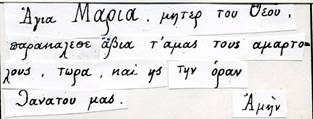 Ἅγια Μαρια. μητερ του Θεου,
παρακαλεσε ἄβια τ'αμας τους αμαρτο-
λους, τωρα, και ης την ὁραν
θανατου μας. Ἀμὴν